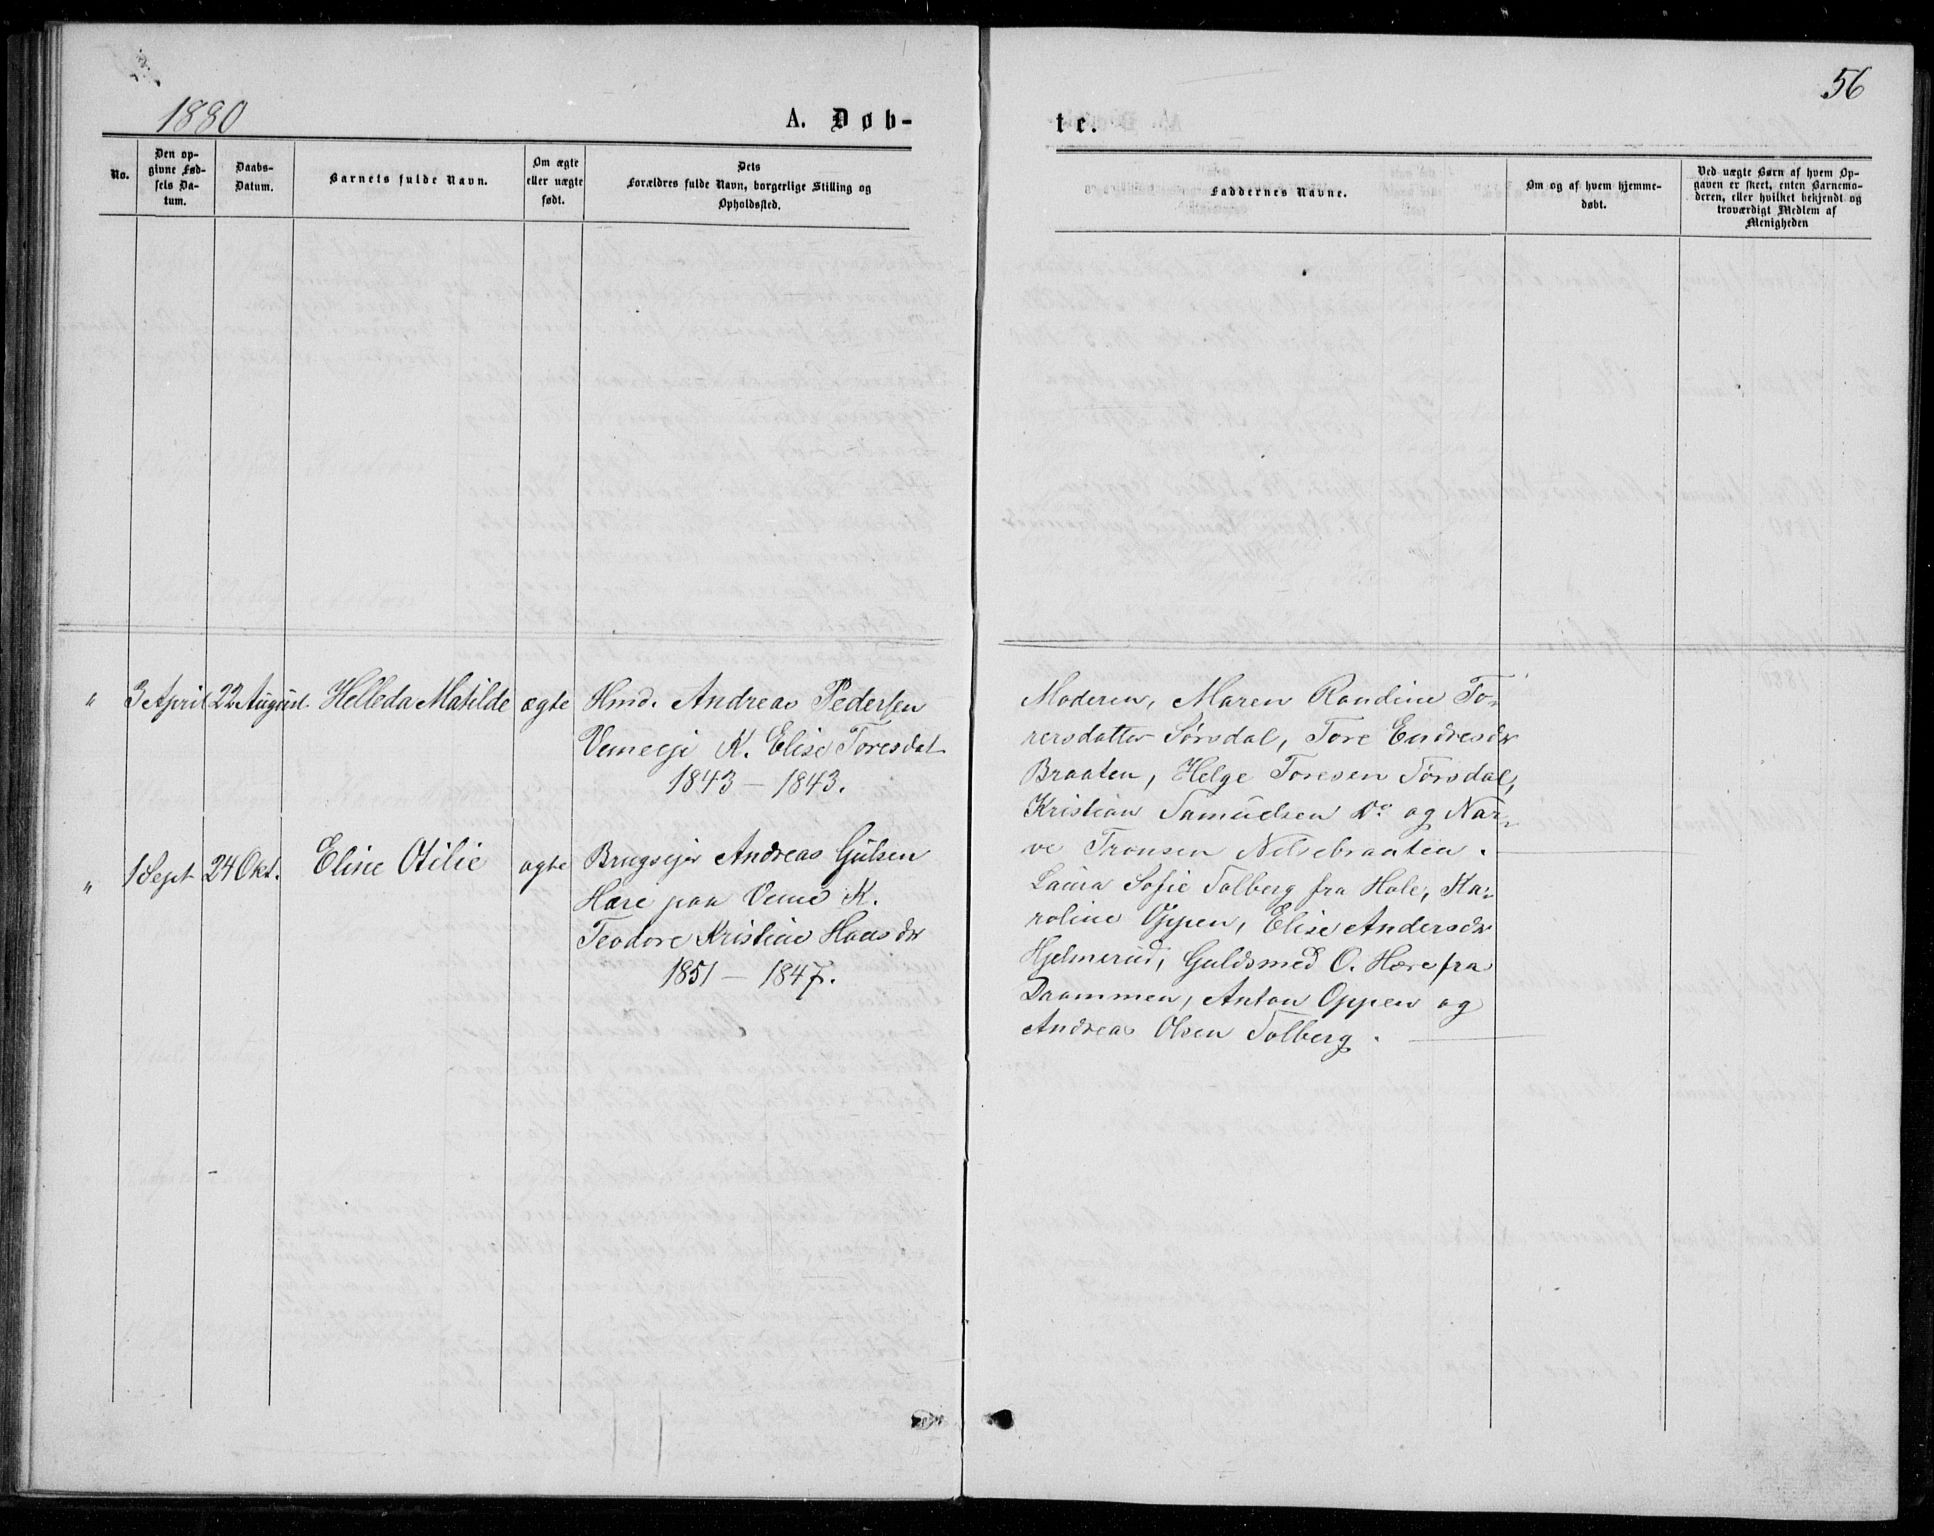 1880
A. Døb-
te.
56
No.
Den op-
givne Fød-
sels Da-
tum.
Daabs-
Datum.
Barnets fulde Navn.
Om ægte
eller uægte
født.
Dets
Forældres fulde Navn, borgerlige Stilling og
Opholdssted.
Faddernes Navne.
Om og af hvem hjemme-
døbt.
Ved uægte Børn af hvem Op-
gaven er skeet, enten Barnemo-
deren, eller hvilket bekjendt og
troværdigt Medlem af
Menigheden
" 3 April 22 August. Helleda Matilde ægte Hmd. Andreas Pedersen
Vemeeje K. Elise Toresdat
1843 – 1843.
Moderen, Maren Randine To-
rersdatter Sørsdal, Tore Endresdr
Braaten, Helge Toresen Sørsdal,
Kristian Samuelsen Do og Nar-
ve Tronsen Nilsebraaten.
" 1 Sept 24 Okt. Eline Otilie ægte Brugsejer Andreas Gulsen
Hære paa Veme K.
Teodore Kristine Hansdr
1851 – 1847.
Laura Sofie Tolberg fra Hole, Ka-
roline Oppen, Elise Andersdr
Hjelmerud, Guldsmed O. Hære fra
Drammen, Anton Oppen og
Andreas Olsen Tolberg.